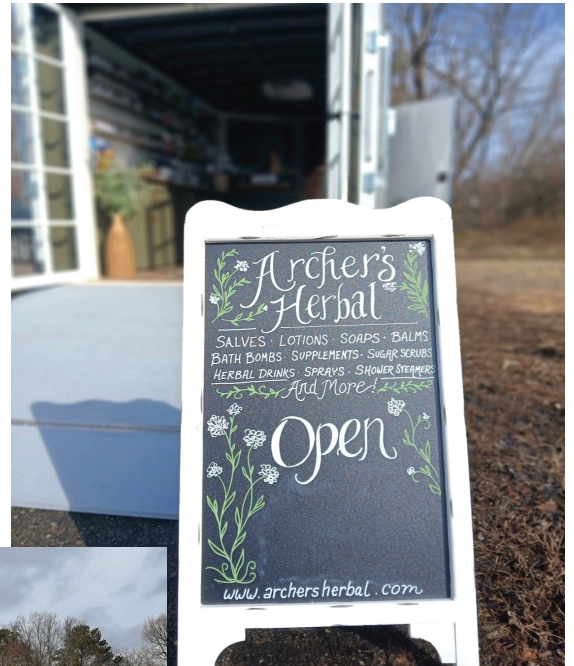 Archer's
Herbal
SALVES · LOTIONS · SOAPS · BALMS
BATH BOMBS · SUPPLEMENTS · SUGAR SCRUBS
HERBAL DRINKS · SPRAYS · SHOWER STEAMERS
And More!
Open
www.archersherbal.com